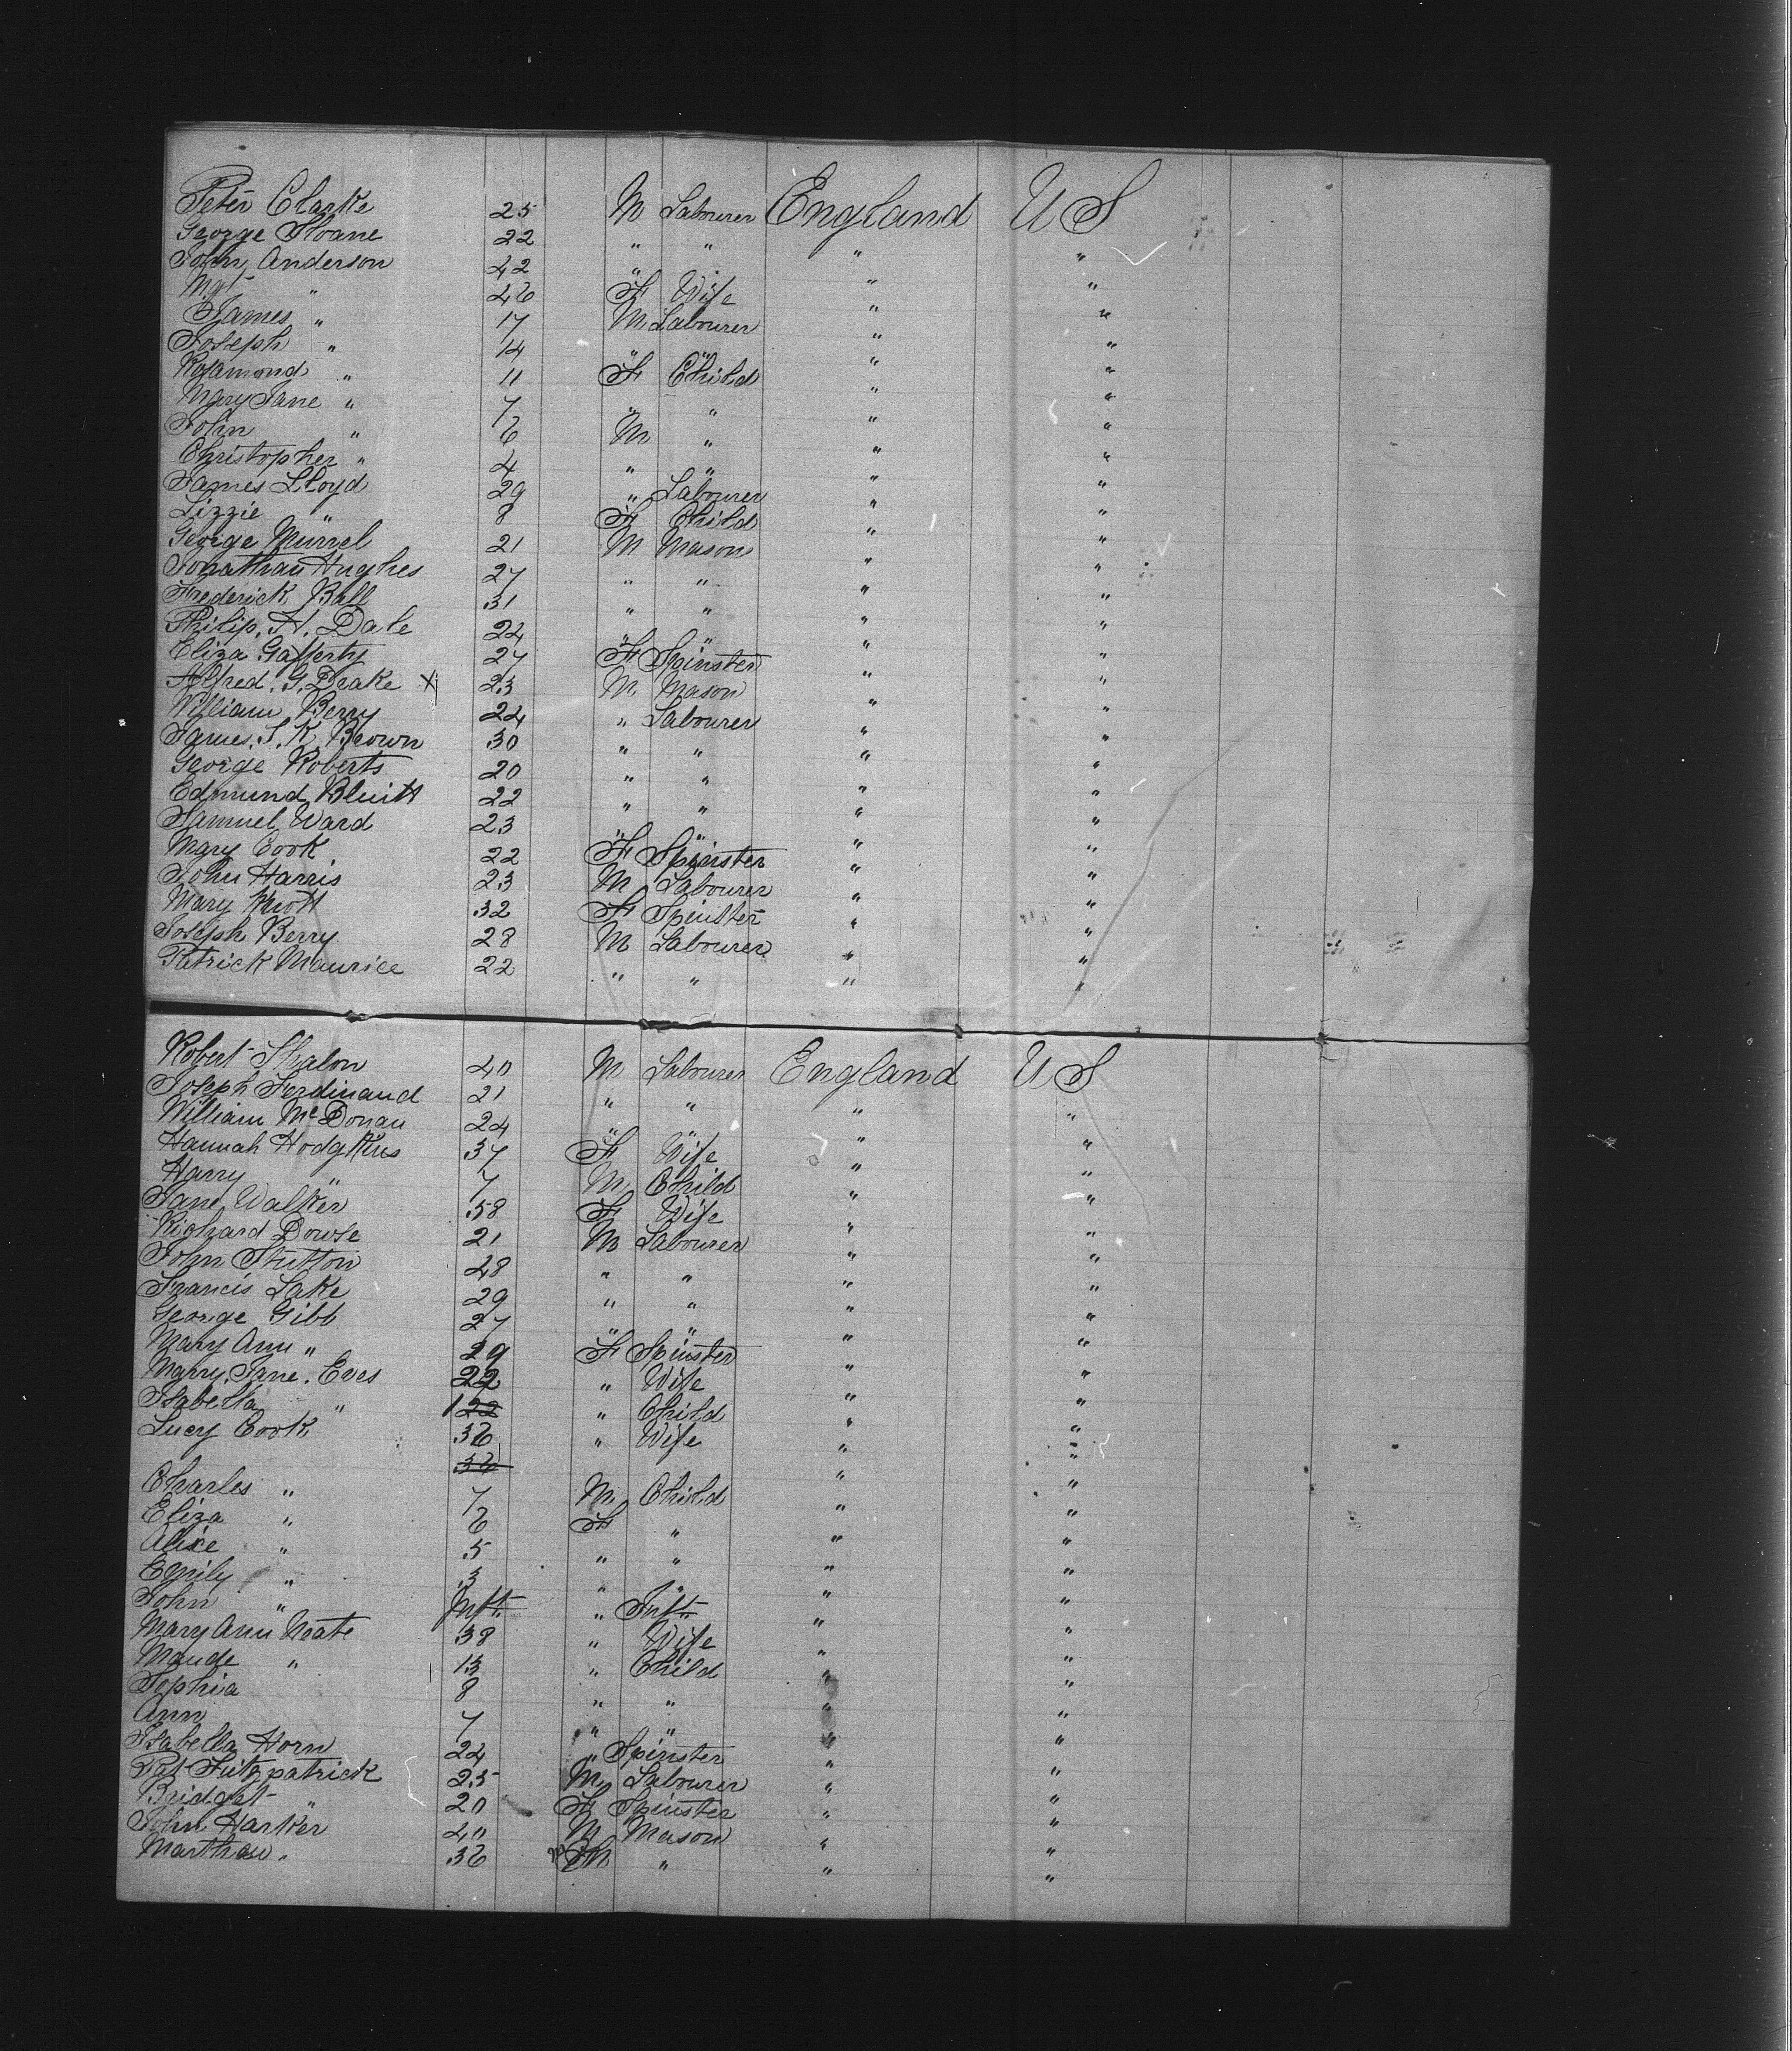 Peter Clarke 25 M Labourer England U S
George Sloane 22 " " " "
John Anderson 42 " " "
Mgt " 46 F Wife " "
James " 17 M Labourer " "
Joseph " 14 " " " "
Rosamond " 11 F Child " "
Mary Jane " 7 " " " "
John " 6 M " " "
Christopher " 4 " " " "
James Lloyd 29 " Labourer " "
Lizzie " 8 F Child " "
George Murrel 21 M Mason " "
Jonathan Hughes 27 " " " "
Frederick Ball 31 " " " "
Philip. H. Date 24 " " " "
Eliza Gafferty 27 F Spinster " "
Alfred. G. Drake X 23 M Mason " "
William Berry 24 " Labourer " "
James. S. K. Brown 30 " " " "
George Roberts 20 " " " "
Edmund Bluitt 22 " " " "
Samuel Ward 23 " " " "
Mary Cook 22 F Spinster " "
John Harris 23 M Labourer " "
Mary 32 F Spinster " "
Joseph Berry 28 M Labourer " "
Patrick Maurice 22 " " " "
Robert Shalon 40 M Labourer England U S
Joseph Ferdinand 21 " " " "
William McDonau 24 " " " "
Hannah Hodgkins 37 F Wife " "
Harry " 7 M Child " "
Jane Walker 58 F Wife " "
Richard Dowse 21 M Labourer " "
John Stutton 28 " " " "
Francis Lake 29 " " " "
George Gibb 27 " " " "
Mary Ann " 29 F Spinster " "
Mary. Jane. Eves 22 " Wife " "
Isabella " 1 22 " Child " "
Lucy Cook 36 " Wife " "
36
Charles " 7 M Child " "
Eliza " 6 F " " "
Alice " 5 " " " "
Emily " 3 " " " "
John " Inft " Inft " "
Mary Ann Neate 38 " Wife " "
Maude " 13 " Child " "
Sophia 8 " " " "
Ann 7 " " " "
Isabella Horn 24 " Spinster " "
Pat Fitzpatrick 25 M Labourer " "
Bridget " 20 F Spinster " "
John Harker 40 M Mason " "
36 M " " "